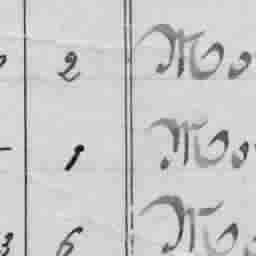 2 Mo
1 Mo
3 6 Mo